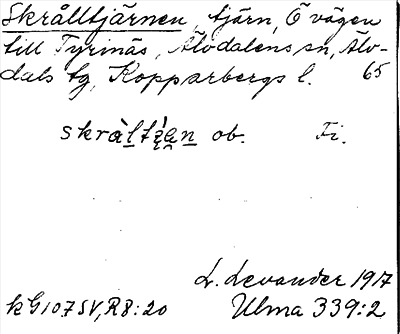 Skrålltjärnen, tjärn, Ö vägen
till Tyrinäs, Älvdalens sn, Älv-
dals tg, Kopparbergs l. 65
ob. Fi.
L. Levander 1917
kG107SV, R8:20 Ulma 339:2